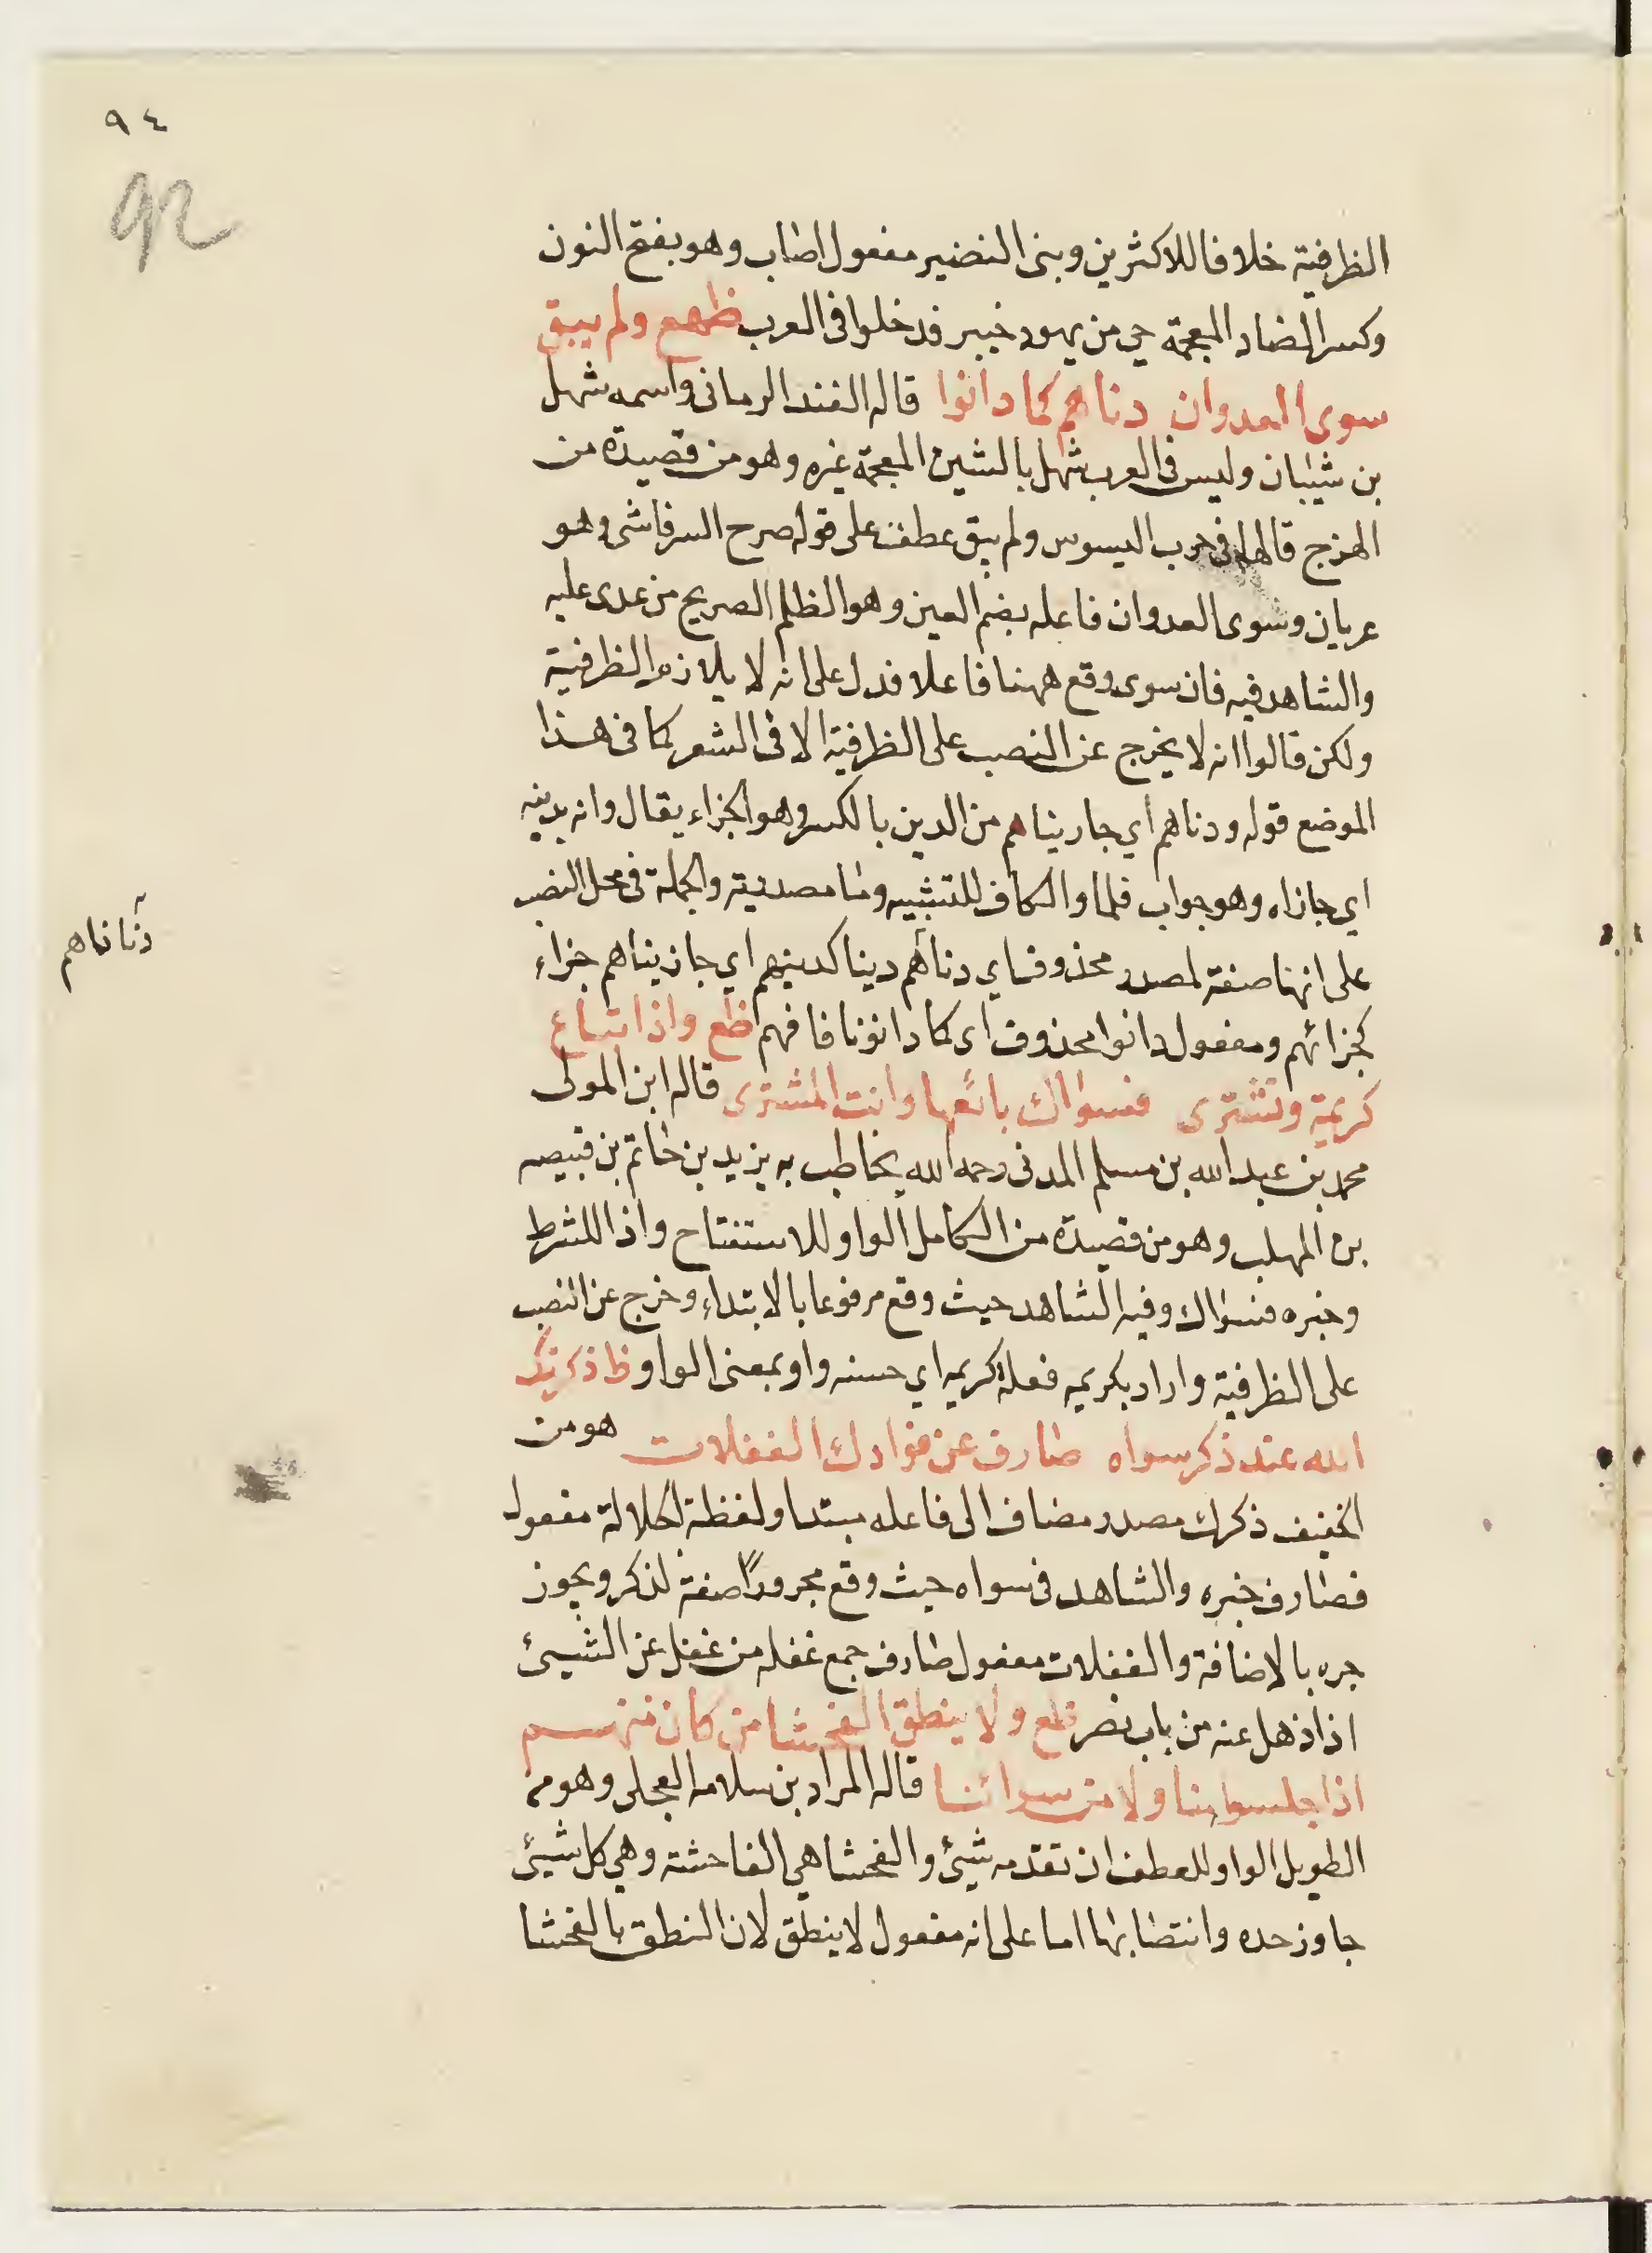 ٩٤
92
الظرفية خلافا للاكثرين وبنى النضير مفعول اصاب وهو بفتح النون
وكسر الضاد المعجمة حي من يهود خيبر قد دخلوا فى العرب ظهع ولم يبق
سوى العدوان دناهم كما دانوا قاله الفند الزمانى واسمه شهل
بن شيبان وليس فى العرب شهل بالشين المعجمة غيره وهو من قصيدة من
الهزج قالها فى حرب البسوس ولم يبق عطف على قوله صرح الشر فامسى وهو
عريان وسوى العدوان فاعله بضم العين وهو الظلم الصريح من عدى عليه
والشاهد فيه فان سوى وقع ههنا فاعلا فدل على انه لا يلازم الظرفية
ولكن قالوا انه لا يخرج عن النصب على الظرفية الا فى الشعر كما فى هذا
الموضع قوله ودناهم اي جازيناهم من الدين بالكسر وهو الجزاء يقال دانه يدينه
اي جازاه وهو جواب فلما والكاف للتشبيه وما مصدرية والجملة فى محل النصب
على انها صفة لمصدر محذوف اي دناهم دينا كدينهم اي جازيناهم جزاء
دنّاناهم
كجزائهم ومفعول دانوا محذوف اى كما دانونا فافهم ظع واذا تباع
كريمة وتشترى فسواك بائعها وانت المشترى قاله ابن المولى
محمد بن عبد الله بن مسلم المدنى رحمه الله يخاطب به يزيد بن حاتم بن قبيصه
بن المهلب وهو من قصيدة من الكامل الواو للاستفتاح واذا للشرط
وخبره فسواك وفيه الشاهد حيث وقع مرفوعا بالابتداء وخرج عن النصب
على الظرفية واراد بكريمه فعلة كريمه اي حسنه واو بمعنى الواو ظ ذكرك
الله عند ذكر سواه صارف عن فوادك الغفلات هو من
الخفيف ذكرك مصدر مضاف الى فاعله مبتدا ولفظة الجلالة مفعول
فصارف خبره والشاهد فى سواه حيث وقع مجرورًا صفة لذكر ويجوز
جره بالاضافة والغفلات مفعول صارف جمع غفله من غفل عن الشيئ
اذا ذهل عنه من باب نصر ظع ولا ينطق الفحشا من كان منهم
اذا جلسوا منا ولا من سوائنا قاله المرار بن سلامه العجلى وهو من
الطويل الواو للعطف ان تقدمه شيئ والفحشا هي الفاحشة وهي كل شيئ
جاوز حده وانتصابها اما على انه مفعول لا ينطق لان النطق بالفحشا